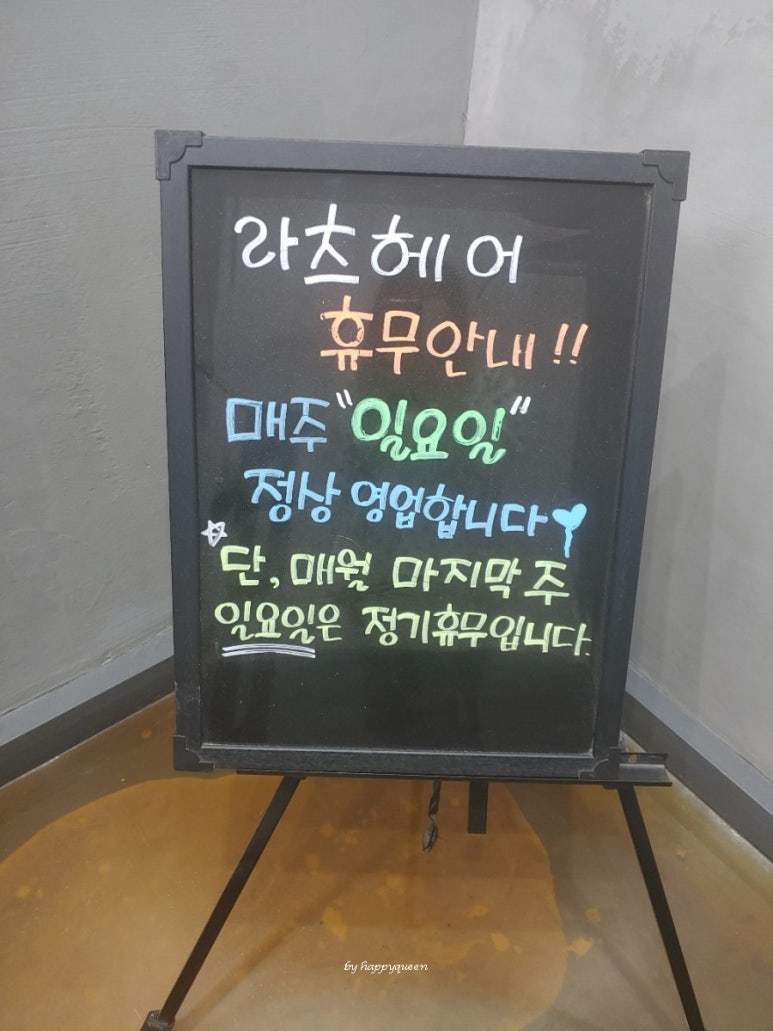 라츠헤어
휴무안내!!
매주 "일요일"
정상 영업합니다
단, 매월 마지막 주
일요일은 정기휴무입니다.
by happyqueen